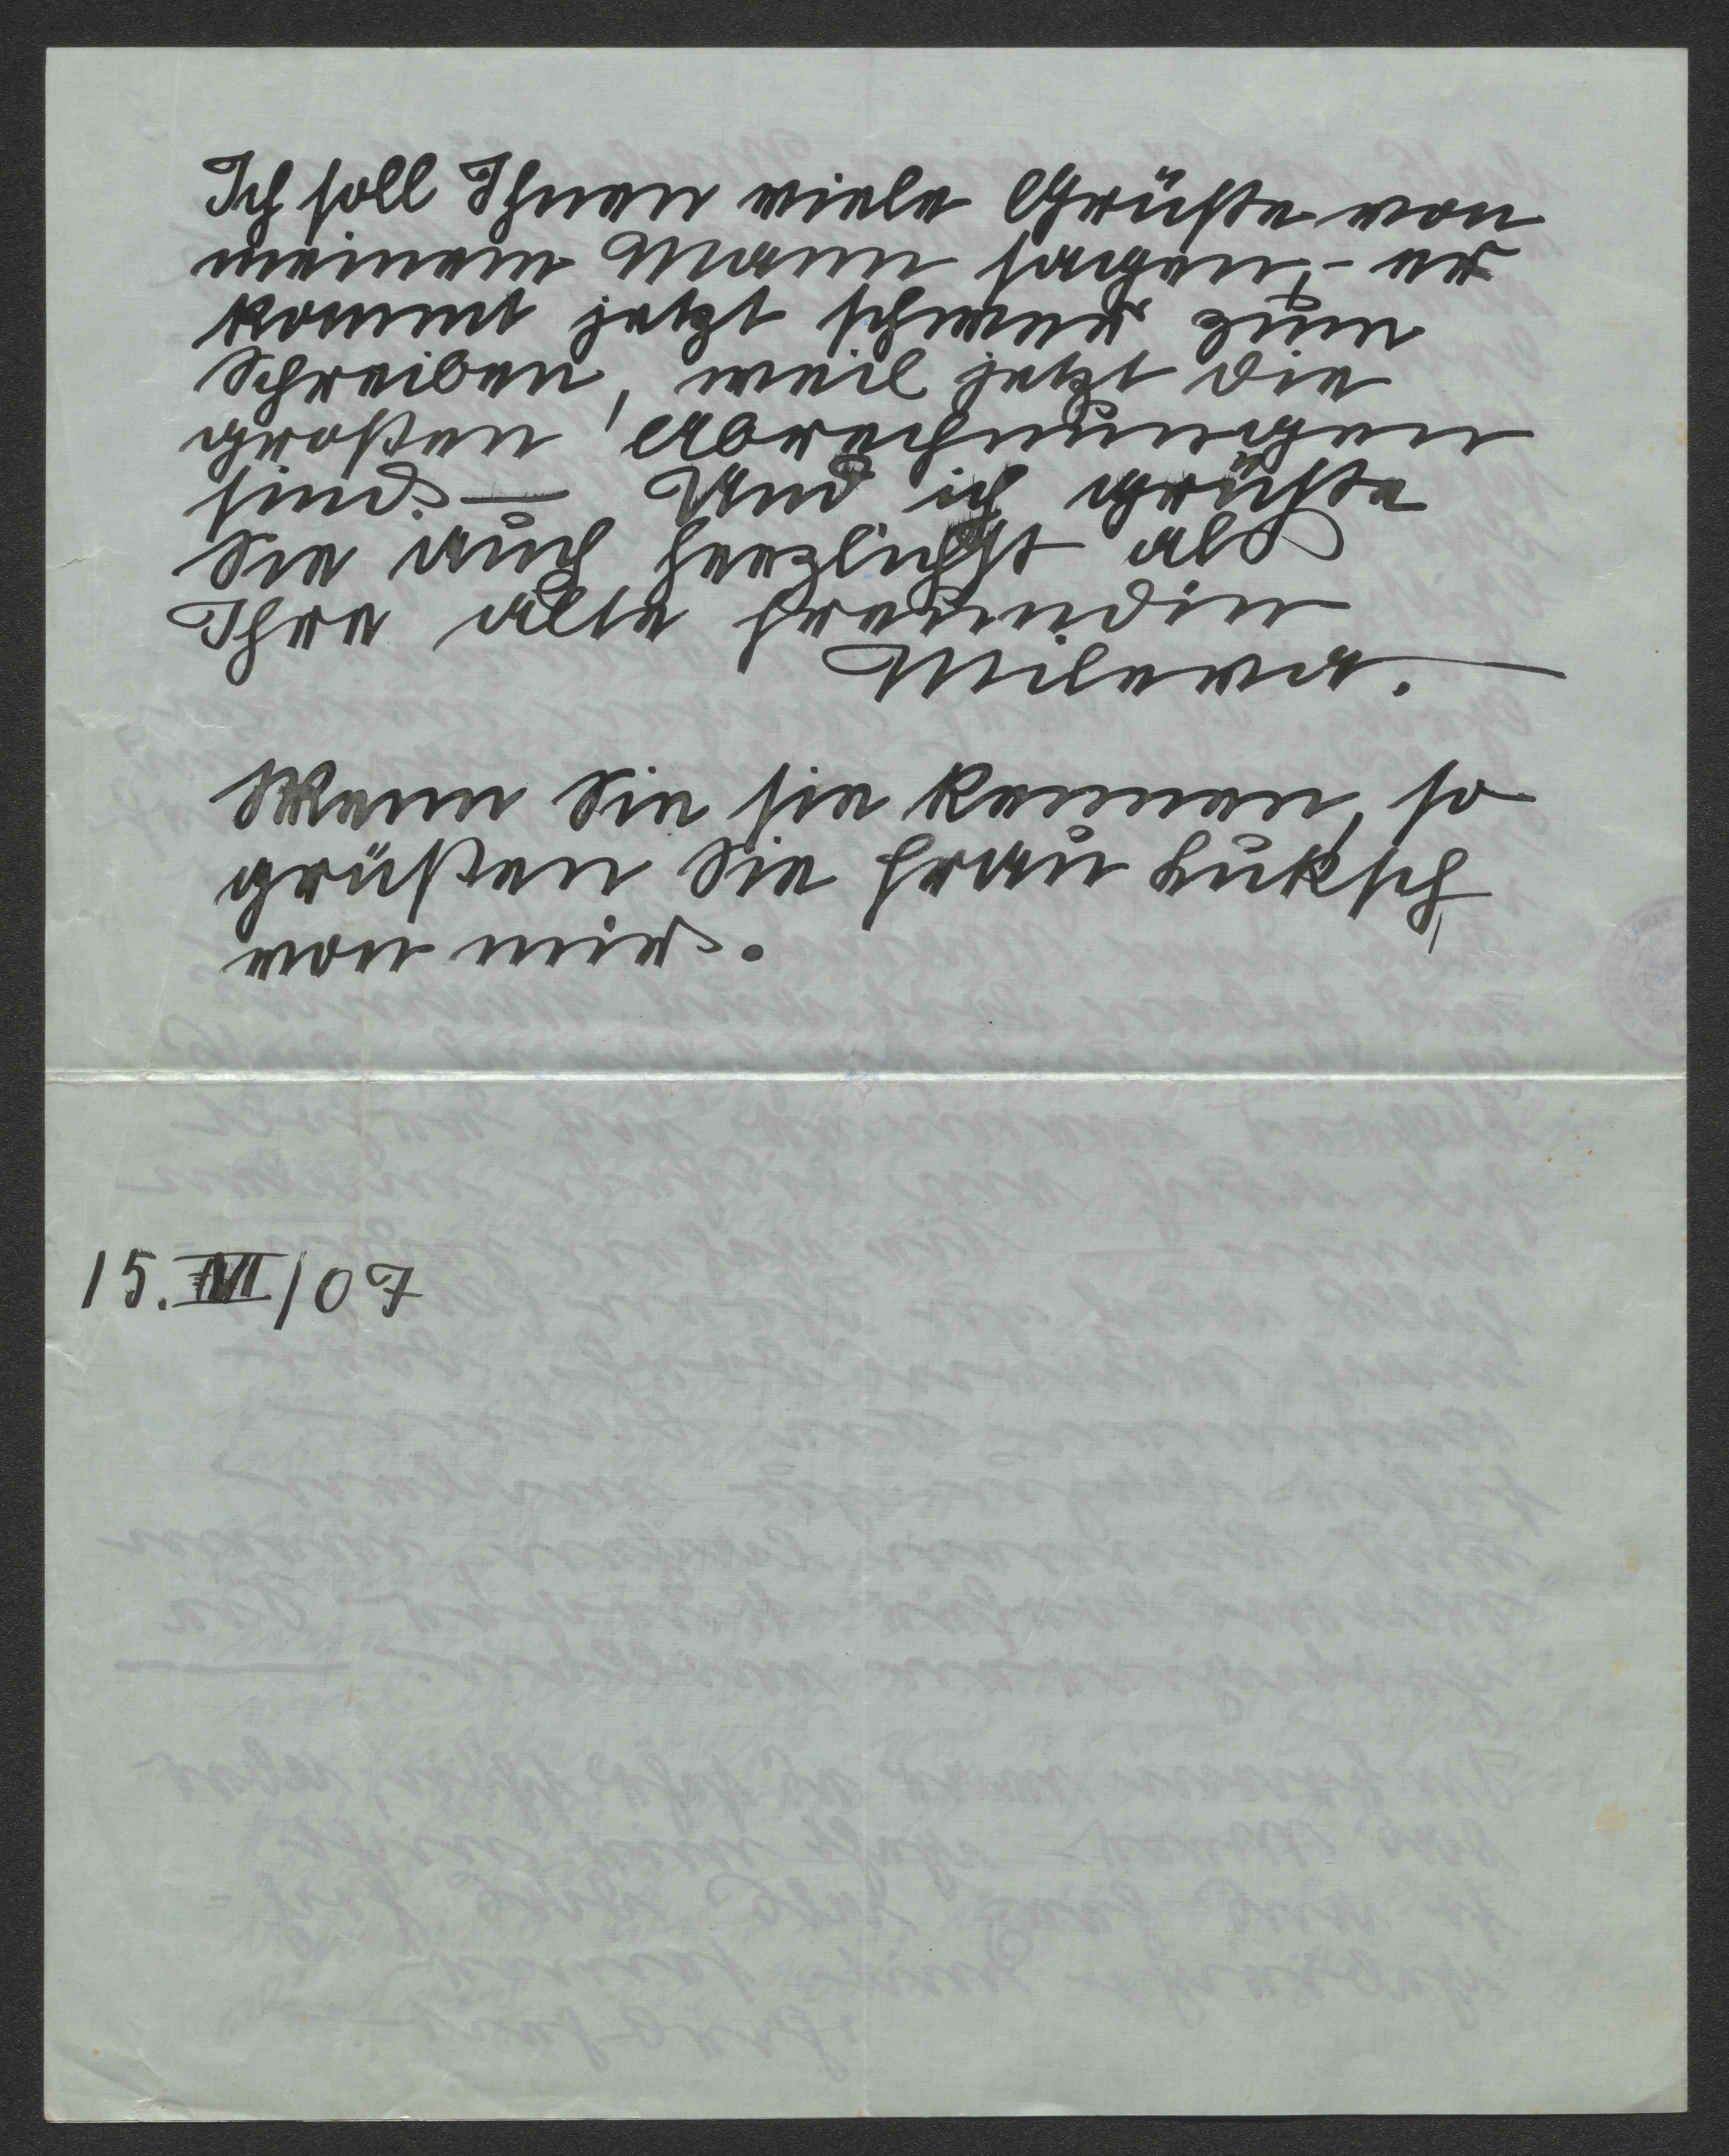 Ich soll Ihnen viele Grüße von
meinem Mann sagen, - er
kommt jetzt schwer zum
Schreiben, weil jetzt die
großen Abrechnungen
sind. — Und ich grüße
Sie auch herzlichst als
Ihre alte Freundin
Mileva.
Wenn Sie sie kennen, so
grüßen Sie Frau Luksch
von mir.
15. VII/07